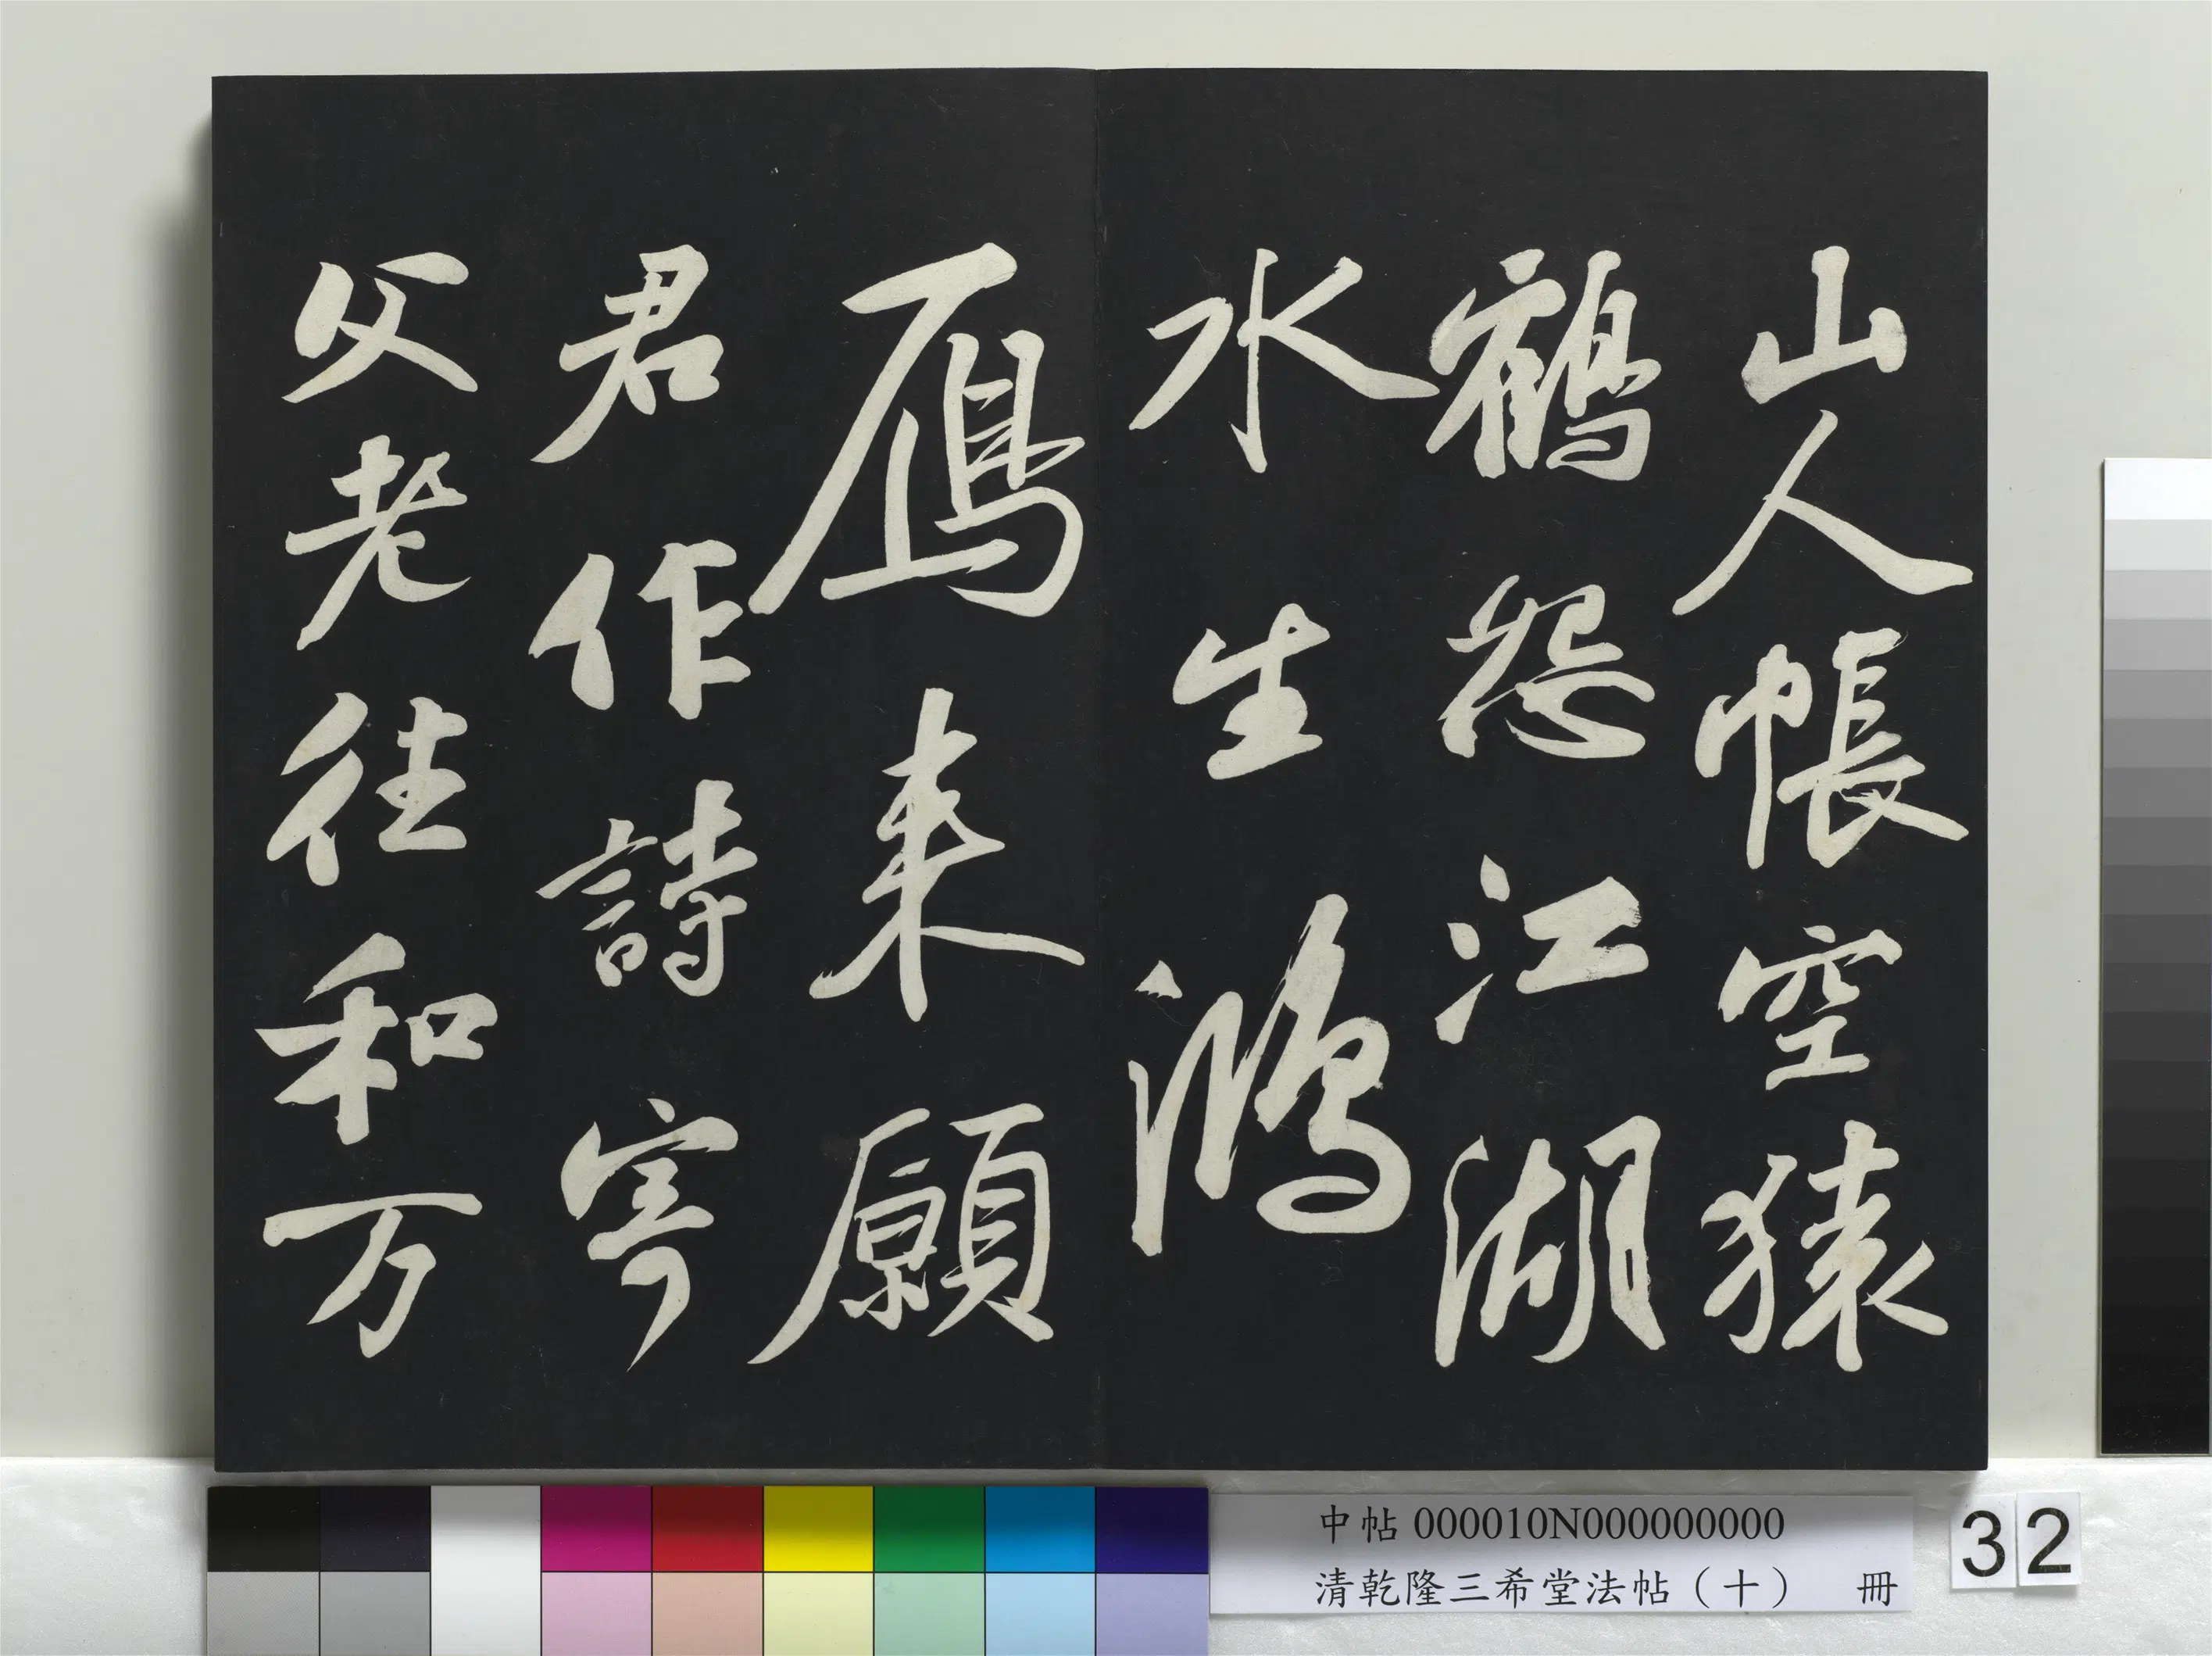 山人帳空猿
鶴怨江湖
水生鴻
鴈来願
君作詩寄
父老往和万
中帖 000010N000000000
清乾隆三希堂法帖（十） 冊
32